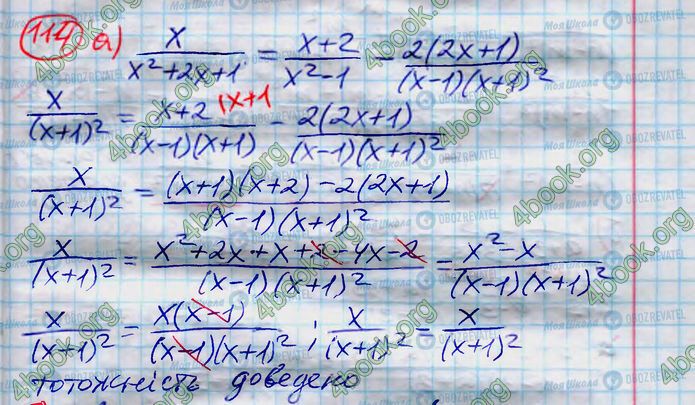 114 а) x/(x²+2x+1) = (x+2)/(x²-1) - 2(2x+1)/((x-1)(x+1)²)
x/(x+1)² = (x+2)/((x-1)(x+1)) (x+1 - 2(2x+1)/((x-1)(x+1)²)
x/(x+1)² = ((x+1)(x+2)-2(2x+1))/((x-1)(x+1)²)
x/(x+1)² = (x²+2x+x+2-4x-2)/((x-1)(x+1)²) = (x²-x)/((x-1)(x+1)²)
x/(x+1)² = x(x-1)/((x-1)(x+1)²) ; x/(x+1)² = x/(x+1)²
тотожність доведено
4book.org
Моя Школа
OBOZREVATEL